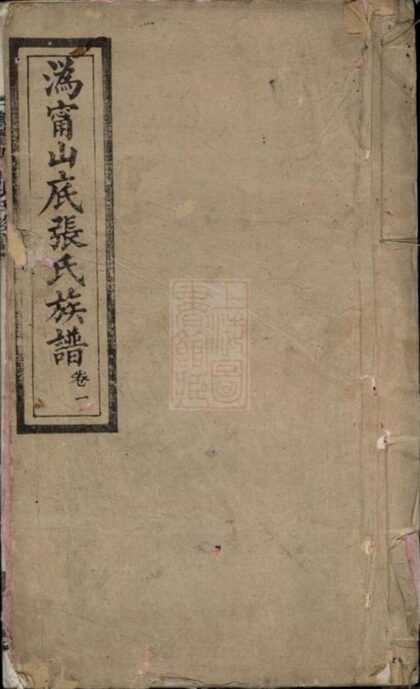 溈甯山底張氏族譜 卷一
上海圖書館藏